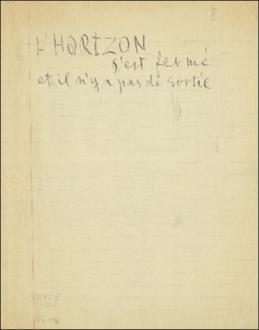 L'HORIZON
s'est fermé
et il n'y a pas de sortie